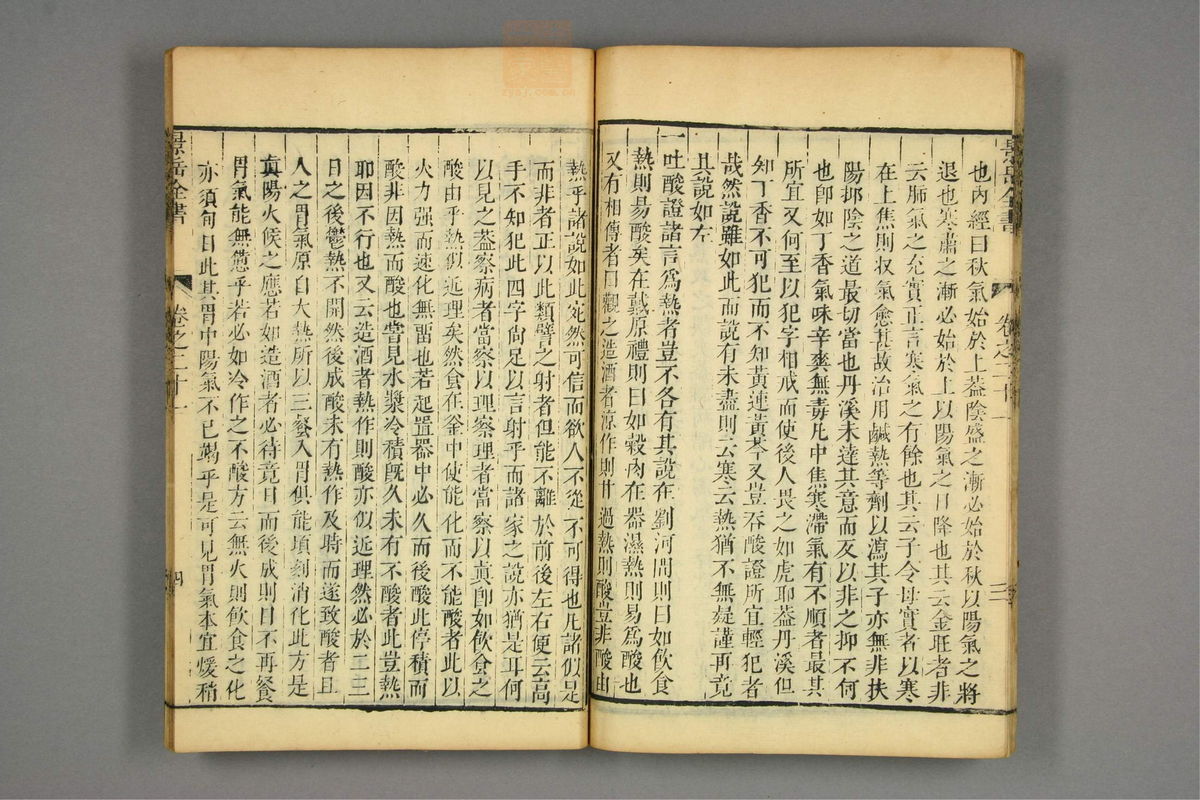 也內經曰秋氣始於上葢陰盛之漸必始於秋以陽氣之將
退也寒肅之漸必始於上以陽氣之日降也其云金旺者非
云肺氣之充實正言寒氣之有餘也其云子令母實者以寒
在上焦則収氣愈甚故治用鹹熱等劑以瀉其子亦無非扶
陽抑陰之道最切當也丹溪未達其意而反以非之抑不何
也卽如丁香氣味辛爽無毒凡中焦寒滯氣有不順者最其
所宜又何至以犯字相戒而使後人畏之如虎耶葢丹溪但
知丁香不可犯而不知黃連黃芩又豈吞酸證所宜輕犯者
哉然說雖如此而說有未盡則云寒云熱猶不無疑謹再竟
其說如左
一吐酸證諸言爲熱者豈不各有其說在劉河間則曰如飲食
熱則易酸矣在戴原禮則曰如穀肉在器濕熱則易爲酸也
又有相傳者曰觀之造酒者涼作則甘過熱則酸豈非酸由
景岳全書
卷之二十一
三
熱乎諸說如此宛然可信而欲人不從不可得也凡諸似是
而非者正以此類譬之射者但能不離於前後左右便云高
手不知犯此四字尙足以言射乎而諸家之說亦猶是耳何
以見之葢察病者當察以理察理者當察以眞卽如飲食之
酸由乎熱似近理矣然食在釜中使能化而不能酸者此以
火力强而速化無畱也若起置器中必久而後酸此停積而
酸非因熱而酸也嘗見水漿冷積旣久未有不酸者此豈熱
耶因不行也又云造酒者熱作則酸亦似近理然必於二三
日之後鬱熱不開然後成酸未有熱作及時而遂致酸者且
人之胃氣原自大熱所以三餐入胃俱能頃刻消化此方是
眞陽火候之應若如造酒者必待竟日而後成則日不再餐
胃氣能無憊乎若必如冷作之不酸方云無火則飲食之化
亦須旬日此其胃中陽氣不已竭乎是可見胃氣本宜煖稍
景岳全書
卷之二十一
四